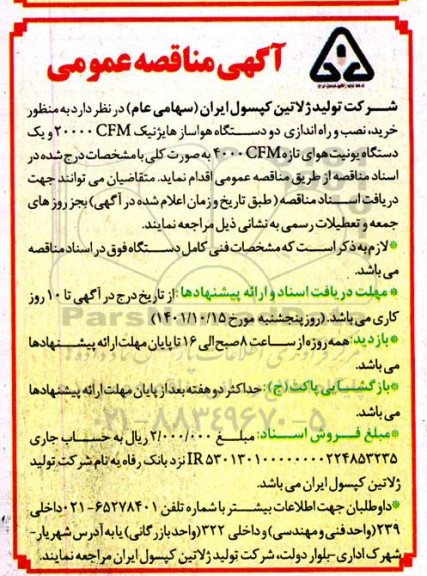 آگهی مناقصه عمومی
شرکت تولید ژلاتین کپسول ایران (سهامی عام) در نظر دارد به منظور
خرید، نصب و راه اندازی دو دستگاه هواساز هایژنیک ۲۰۰۰۰ CFM و یک
دستگاه یونیت هوای تازه ۴۰۰۰ CFM به صورت کلی با مشخصات درج شده در
اسناد مناقصه از طریق مناقصه عمومی اقدام نماید. متقاضیان می توانند جهت
دریافت اسناد مناقصه (طبق تاریخ و زمان اعلام شده در آگهی) بجز روز های
جمعه و تعطیلات رسمی به نشانی ذیل مراجعه نمایند.
*لازم به ذکر است که مشخصات فنی کامل دستگاه فوق در اسناد مناقصه
می باشد.
*مهلت دریافت اسناد و ارائه پیشنهادها: از تاریخ درج در آگهی تا ۱۰ روز
کاری می باشد. (روز پنجشنبه مورخ ۱۴۰۱/۱۰/۱۵)
*بازدید: همه روزه از ساعت ۸ صبح الی ۱۶ تا پایان مهلت ارائه پیشنهادها
می باشد.
*بازگشایی پاکت (ج): حداکثر دو هفته بعد از پایان مهلت ارائه پیشنهادها
می باشد.
*مبلغ فروش اسناد: مبلغ ۲/۰۰۰/۰۰۰ ریال به حساب جاری
IR ۵۳۰۱۳۰۱۰۰۰۰۰۰۰۰۲۲۴۸۵۳۲۳۵ نزد بانک رفاه به نام شرکت تولید
ژلاتین کپسول ایران می باشد.
*داوطلبان جهت اطلاعات بیشتر با شماره تلفن ۶۵۲۷۸۴۰۱-۰۲۱ داخلی
۲۳۹ (واحد فنی و مهندسی) و داخلی ۳۲۲ (واحد بازرگانی) یا به آدرس شهریار-
شهرک اداری-بلوار دولت، شرکت تولید ژلاتین کپسول ایران مراجعه نمایند.
۰۲۱-۸۸۳۴۹۶۷۰-۵